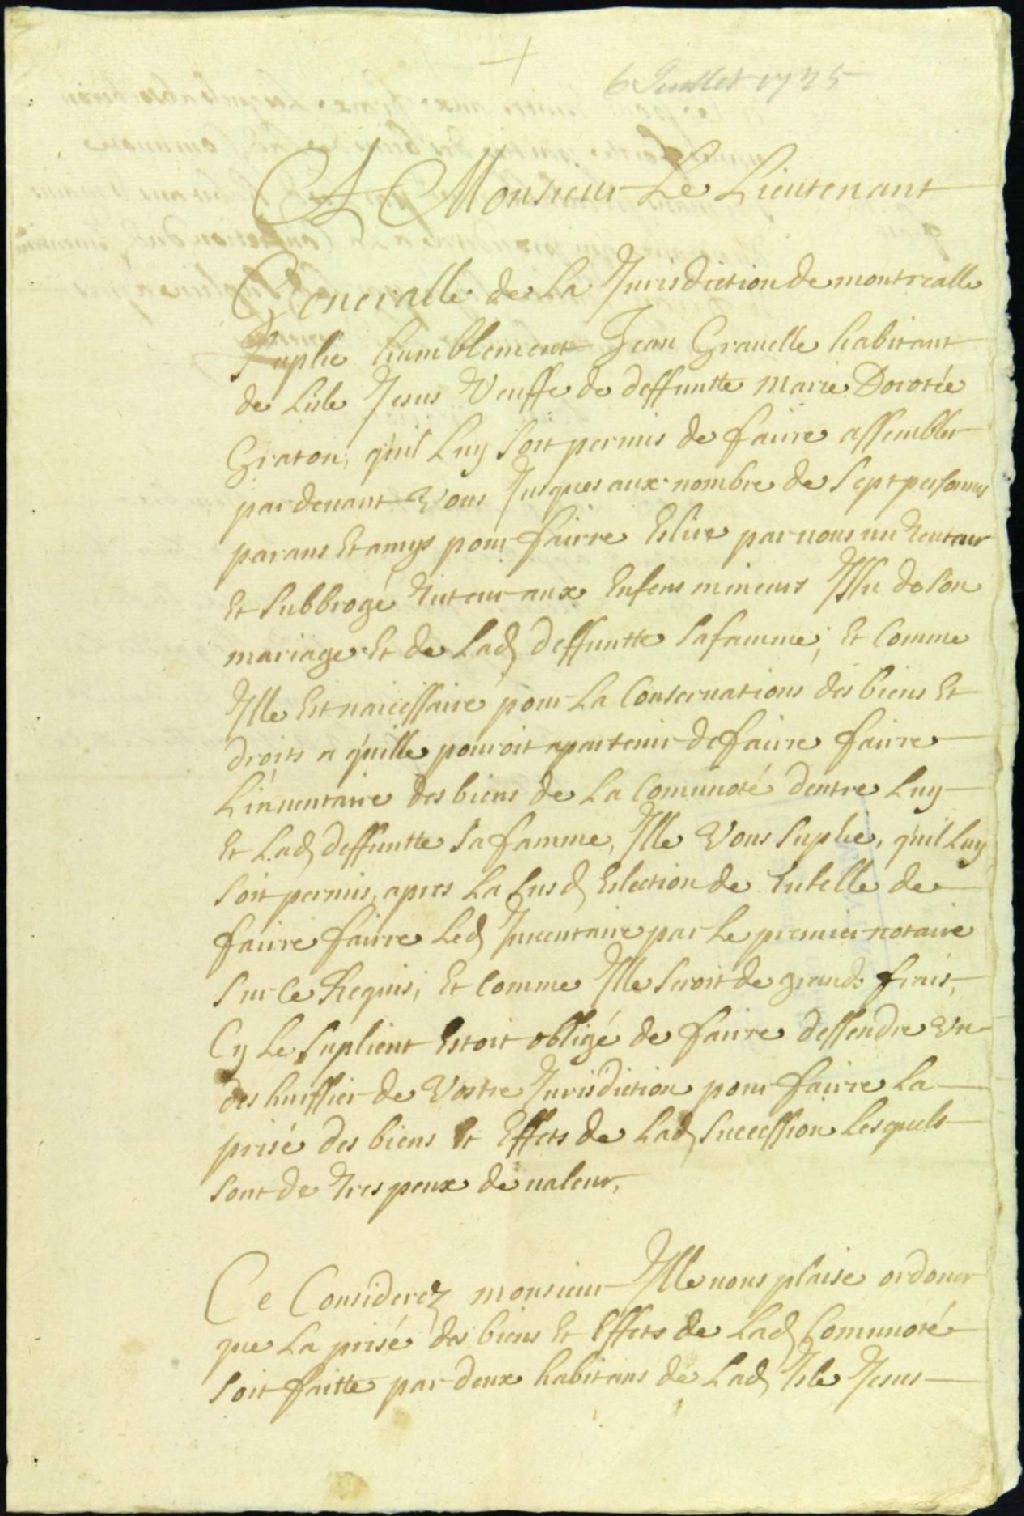 6 Juillet 1725
A Monsieur Le Lieutenant
Generalle de La Jurisdiction de montrealle
Suplie humblement Jean Grauelle habitant
de Lisle Jesus Veuffe de deffuntte Marie Dorotée
Graton, quil Luy soit permis de faiire assembler
par deuant Vous Jusques aux nombre de sept personnes
parans Et amys pour faiire Eslire par nous un tuteur
Et subbrogé tuteur aux Enfens mineurs Issu de son
mariage Et de Lad deffuntte safamme, Et Comme
Ille Est naicessaire pour La Conseruations des biens Et
droits a quille pouroit apartenir de faiire faiire
Linuentaire des biens de La Comunoté dentre Luy
Et Lad deffuntte sa famme, Ille Vous suplie, quil Luy
soit permis, apres La susd Eslection de tutelle de
faiire faiire Led Inuentaire par Le premier notaire
sur Ce Requis, Et Comme Ille seroit de grands frais,
Cy Le suplient Estoit obligé de faiire dessendre Vn
des huissier de Vostre Jurisdiction pour faiire La
prisé des biens Et Effets de Lad succession Lesquels
sont de tres peux de ualeur,
Ce Considerez monsieur Ille uous plaise ordoner
que La prisé des biens Et Effets de Lad Comunoté
soit faitte par deux habitans de Lad Isle Jesus